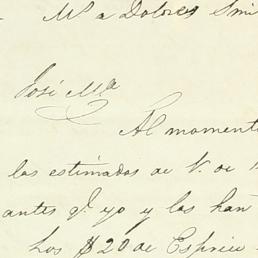 Mª a Dolores Smi
José Mª
Al momento
las estimadas de V. de
antes qᵉ yo y las han
Los $20 de